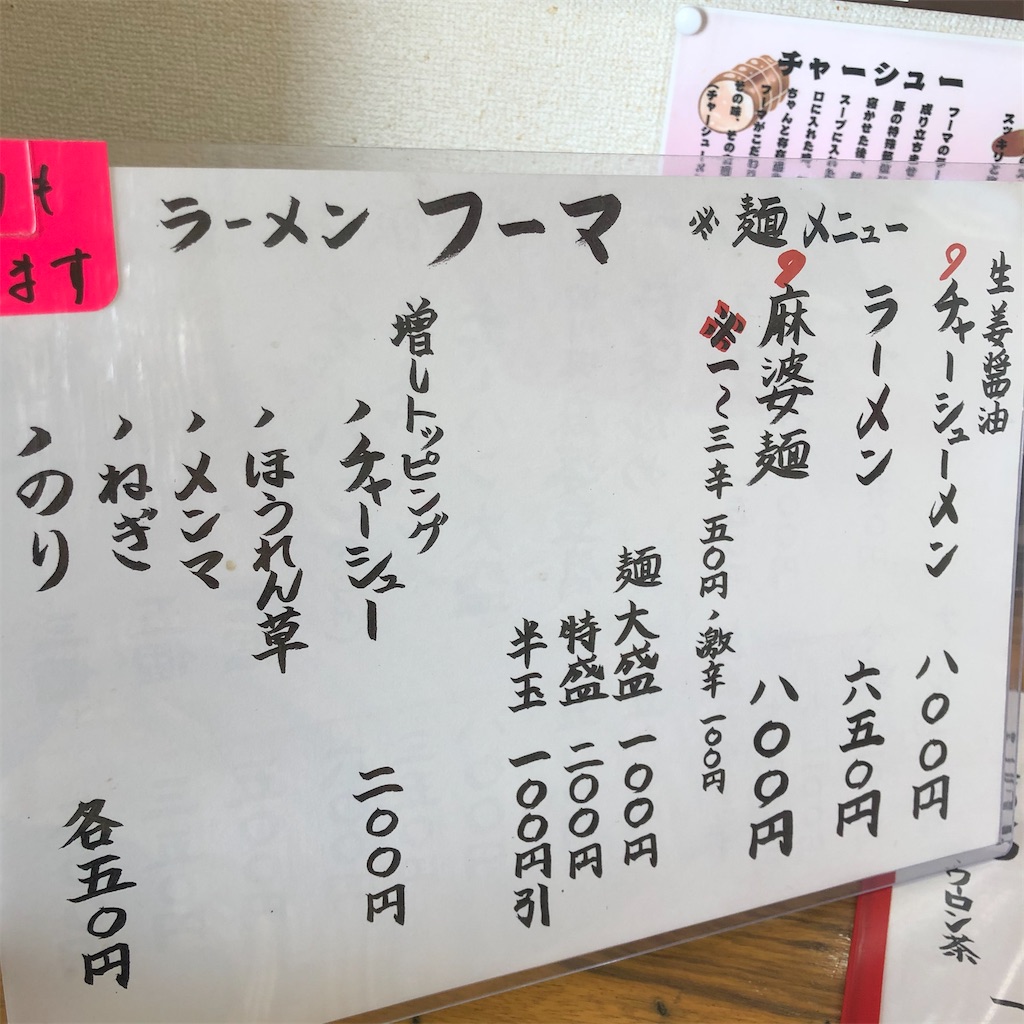 ラーメン フーマ ※麺メニュー
生姜醤油
チャーシューメン 八〇〇円
ラーメン 六五〇円
麻婆麺 八〇〇円
※一~三辛 五〇円、激辛 一〇〇円
麺大盛 一〇〇円
特盛 二〇〇円
半玉 一〇〇円引
増しトッピング
、チャーシュー 二〇〇円
、ほうれん草
、メンマ
、ねぎ
、のり
各五〇円
も
ます
チャーシュー
ウロン茶